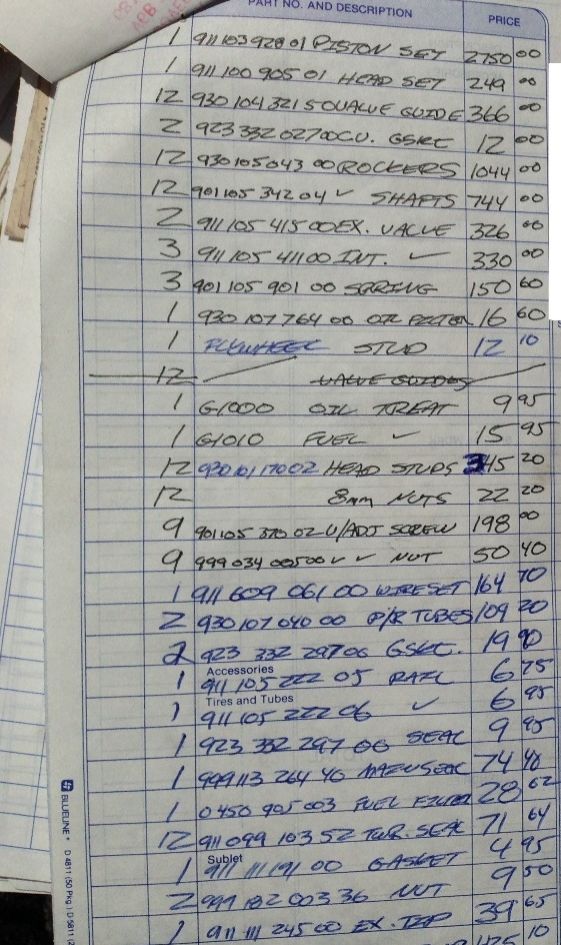 PART NO. AND DESCRIPTION PRICE
1 911 103 928 01 PISTON SET 2750 00
1 911 100 905 01 HEAD SET 249 00
12 930 104 321 50 VALVE GUIDE 366 00
2 923 332 027 00 12 00
12 930 105 043 00 ROCKERS 1044 00
12 901 105 342 04 ✓ SHAFTS 744 00
2 911 105 415 00 EX. VALVE 326 00
3 911 105 411 00 INT. ✓ 330 00
3 901 105 901 00 SPRING 150 60
1 930 107 764 00 OIL FILTER 16 60
1 FLYWHEEL STUD 12 10
12 VALVE GUIDES
1 G1000 OIL TREAT 9 95
1 G1010 FUEL ✓ 15 95
12 930 101 170 02 HEAD STUDS 345 20
12 8mm NUTS 22 20
9 901 105 370 02 V/ADJ SCREW 198 00
9 999 034 005 00 ✓ ✓ NUT 50 40
1 911 609 061 00 WIRESET 164 70
2 930 107 040 00 P/R TUBES 109 20
2 923 332 297 06 GSKC. 19 90
Accessories
1 911 105 222 05 RAIL 6 75
Tires and Tubes
1 911 105 222 06 ✓ 6 95
1 923 332 297 06 SEAL 9 95
1 999 113 264 40 74 48
1 0 450 905 003 FUEL FILTER 28 62
12 911 099 103 52 SEAL 71 64
Sublet
1 911 111 191 00 GASKET 4 95
2 999 182 003 36 NUT 9 50
1 911 111 245 00 EX. 39 65
10
BLUELINE